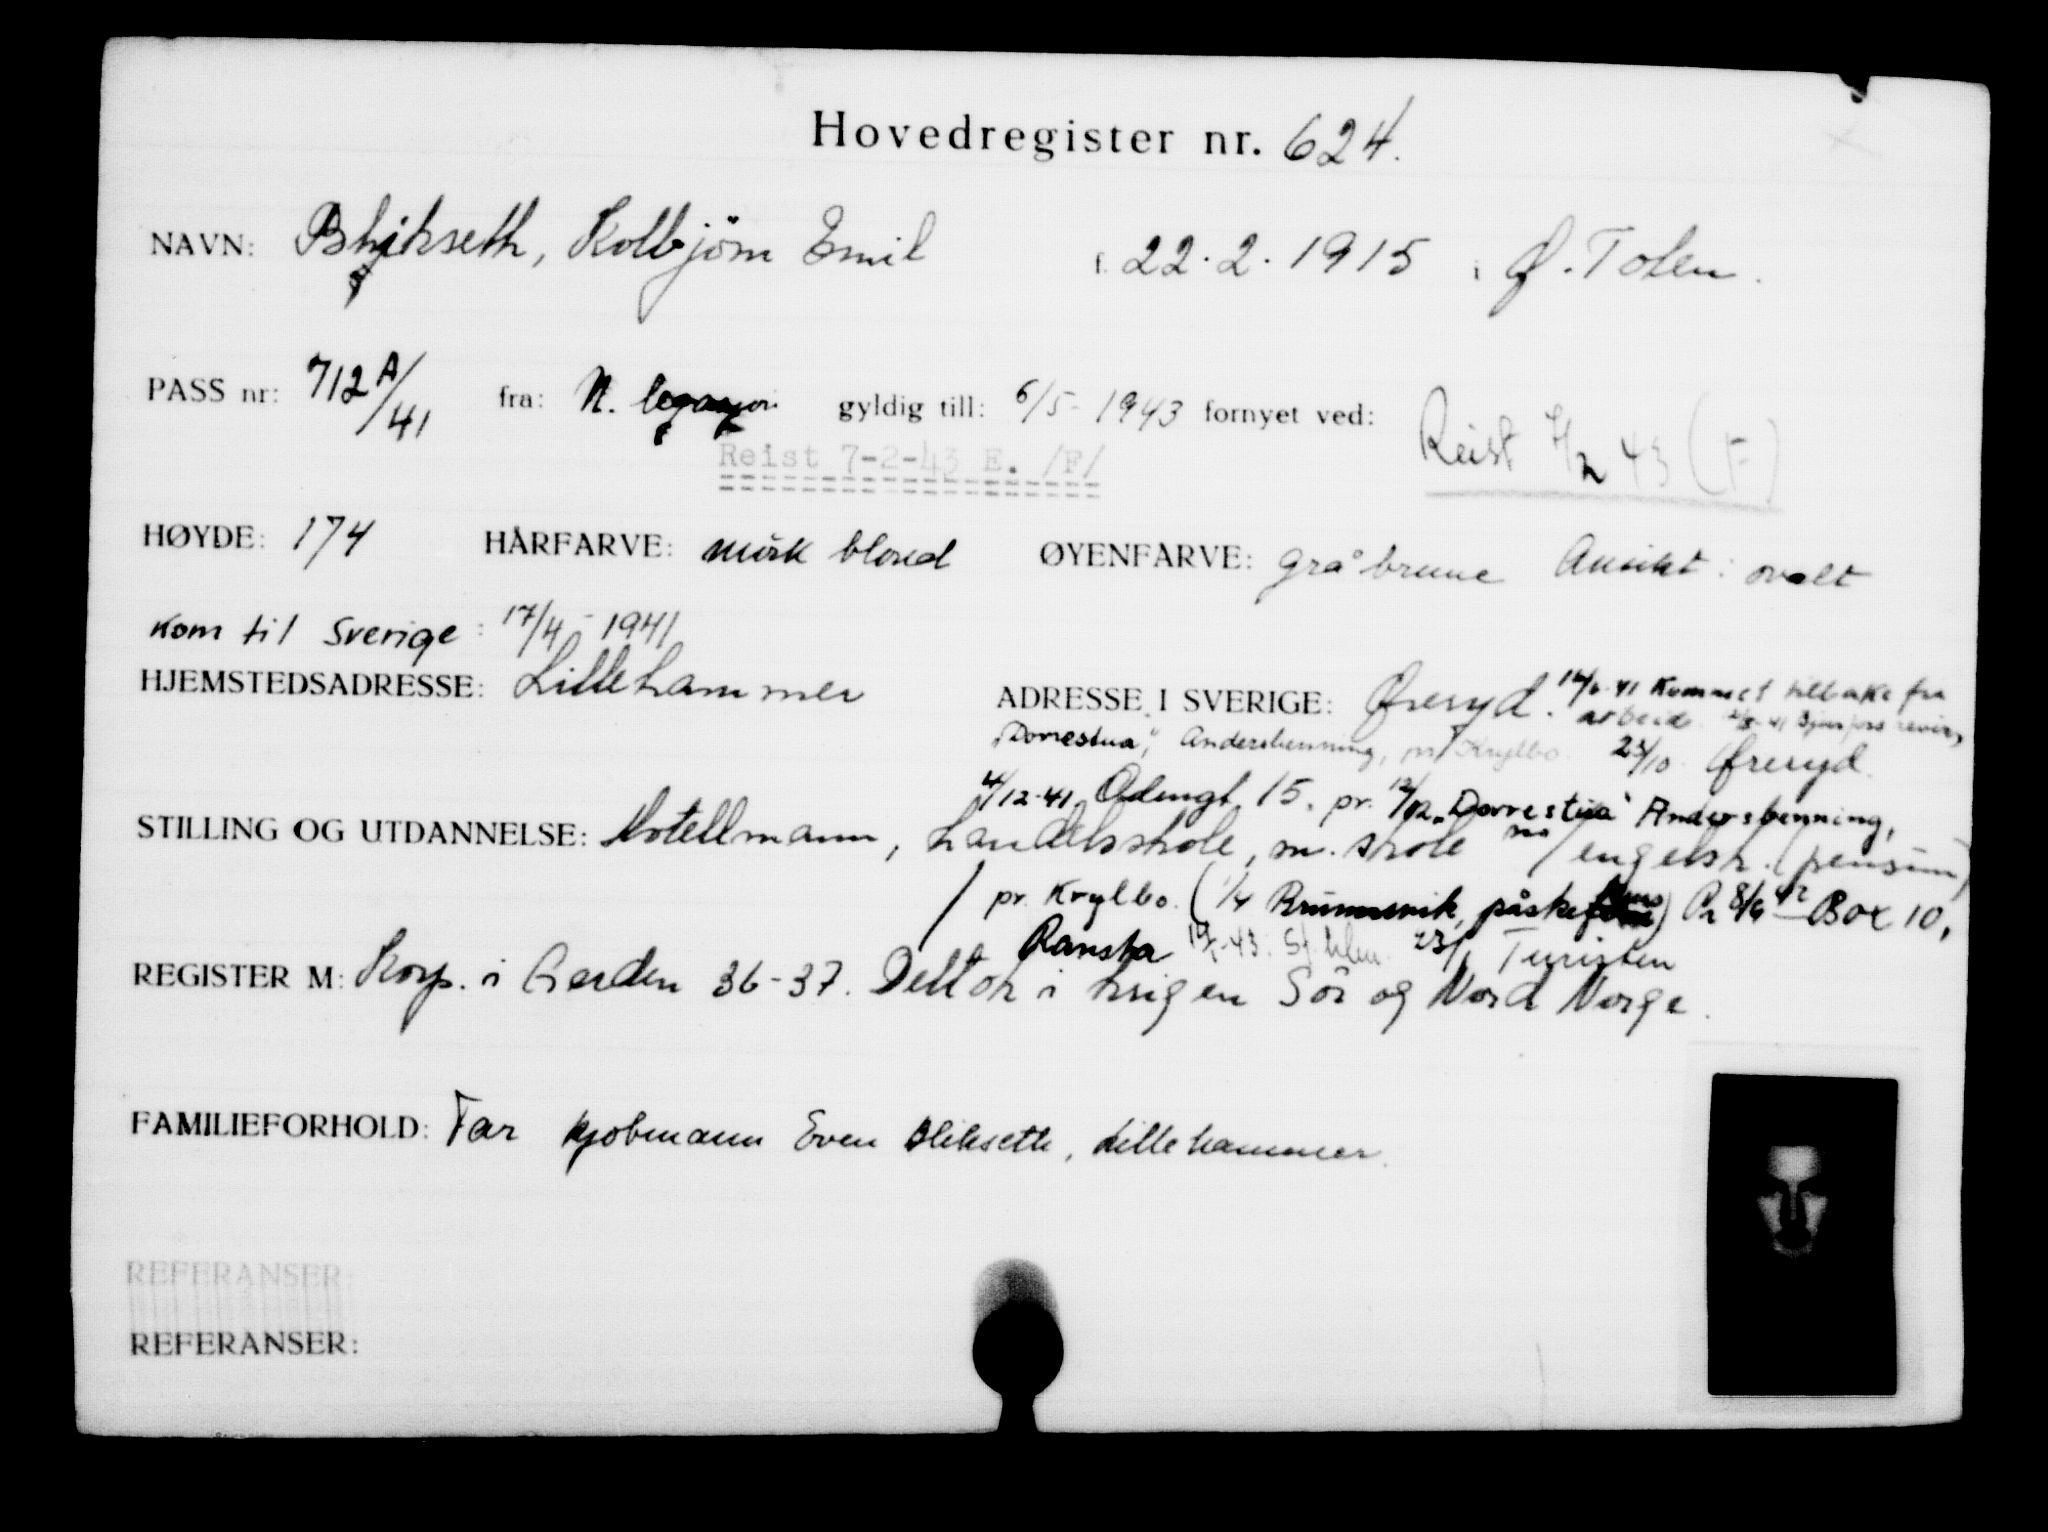 Hovedregister nr. 624.
NAVN: Blikseth, Kolbjörn Emil f. 22.2.1915 i Ø. Toten.
PASS nr: 712A/41 fra: N. legasjon gyldig till: 6/5-1943 fornyet ved:
Reist 7-2-43 E. /F/
Reist 7/2 43 (F)
HØYDE: 174 HÅRFARVE: mörk blond ØYENFARVE: gråbrune Ansikt: ovalt
Kom til Sverige: 17/4-1941
HJEMSTEDSADRESSE: Lillehammer
ADRESSE I SVERIGE: Øreryd. 41 Kommet tilbake fra
arbeid.
"Dorrestua", Andersbenning, pr Krylbo. 23/10 Øreryd.
4/12-41 Odengt 15. pr. 12/12 "Dorrestua" Andersbenning,
STILLING OG UTDANNELSE: Hotellmann, handelsskole, m. skole m/engelsk. (pensum)
pr. Krylbo. (1/4 Brunnsvik, påske) Pr 8/6 42 Box 10,
Ransta 43: St.hlm. 23/1 Turisten
REGISTER M: Korp. i Garden 36-37. Deltok i krigen Sör og Nord Norge.
FAMILIEFORHOLD: Far kjøbmann Even Blikseth, Lillehammer.
REFERANSER:
REFERANSER: